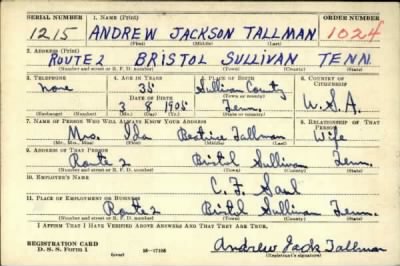 SERIAL NUMBER 1. NAME (Print) ORDER NUMBER
1215 ANDREW JACKSON TALLMAN 1024
(First) (Middle) (Last)
2. ADDRESS (Print)
ROUTE 2 BRISTOL SULLIVAN TENN.
(Number and street or R. F. D. number) (Town) (County) (State)
3. TELEPHONE 4. AGE IN YEARS 5. PLACE OF BIRTH 6. COUNTRY OF CITIZENSHIP
none 35 Sullivan County
DATE OF BIRTH (Town or county)
3 8 1905 Tenn. U.S.A.
(Exchange) (Number) (Mo.) (Day) (Yr.) (State or country)
7. NAME OF PERSON WHO WILL ALWAYS KNOW YOUR ADDRESS 8. RELATIONSHIP OF THAT PERSON
Mrs. Ida Beatrice Tallman Wife
(Mr., Mrs., Miss) (First) (Middle) (Last)
9. ADDRESS OF THAT PERSON
Route 2 Bristol Sullivan Tenn.
(Number and street or R. F. D. number) (Town) (County) (State)
10. EMPLOYER'S NAME
C. F.
11. PLACE OF EMPLOYMENT OR BUSINESS
Route 2 Bristol Sullivan Tenn.
(Number and street or R. F. D. number) (Town) (County) (State)
I AFFIRM THAT I HAVE VERIFIED ABOVE ANSWERS AND THAT THEY ARE TRUE.
REGISTRATION CARD
D. S. S. Form 1 (over) Andrew Jack Tallman
(Registrant's signature)